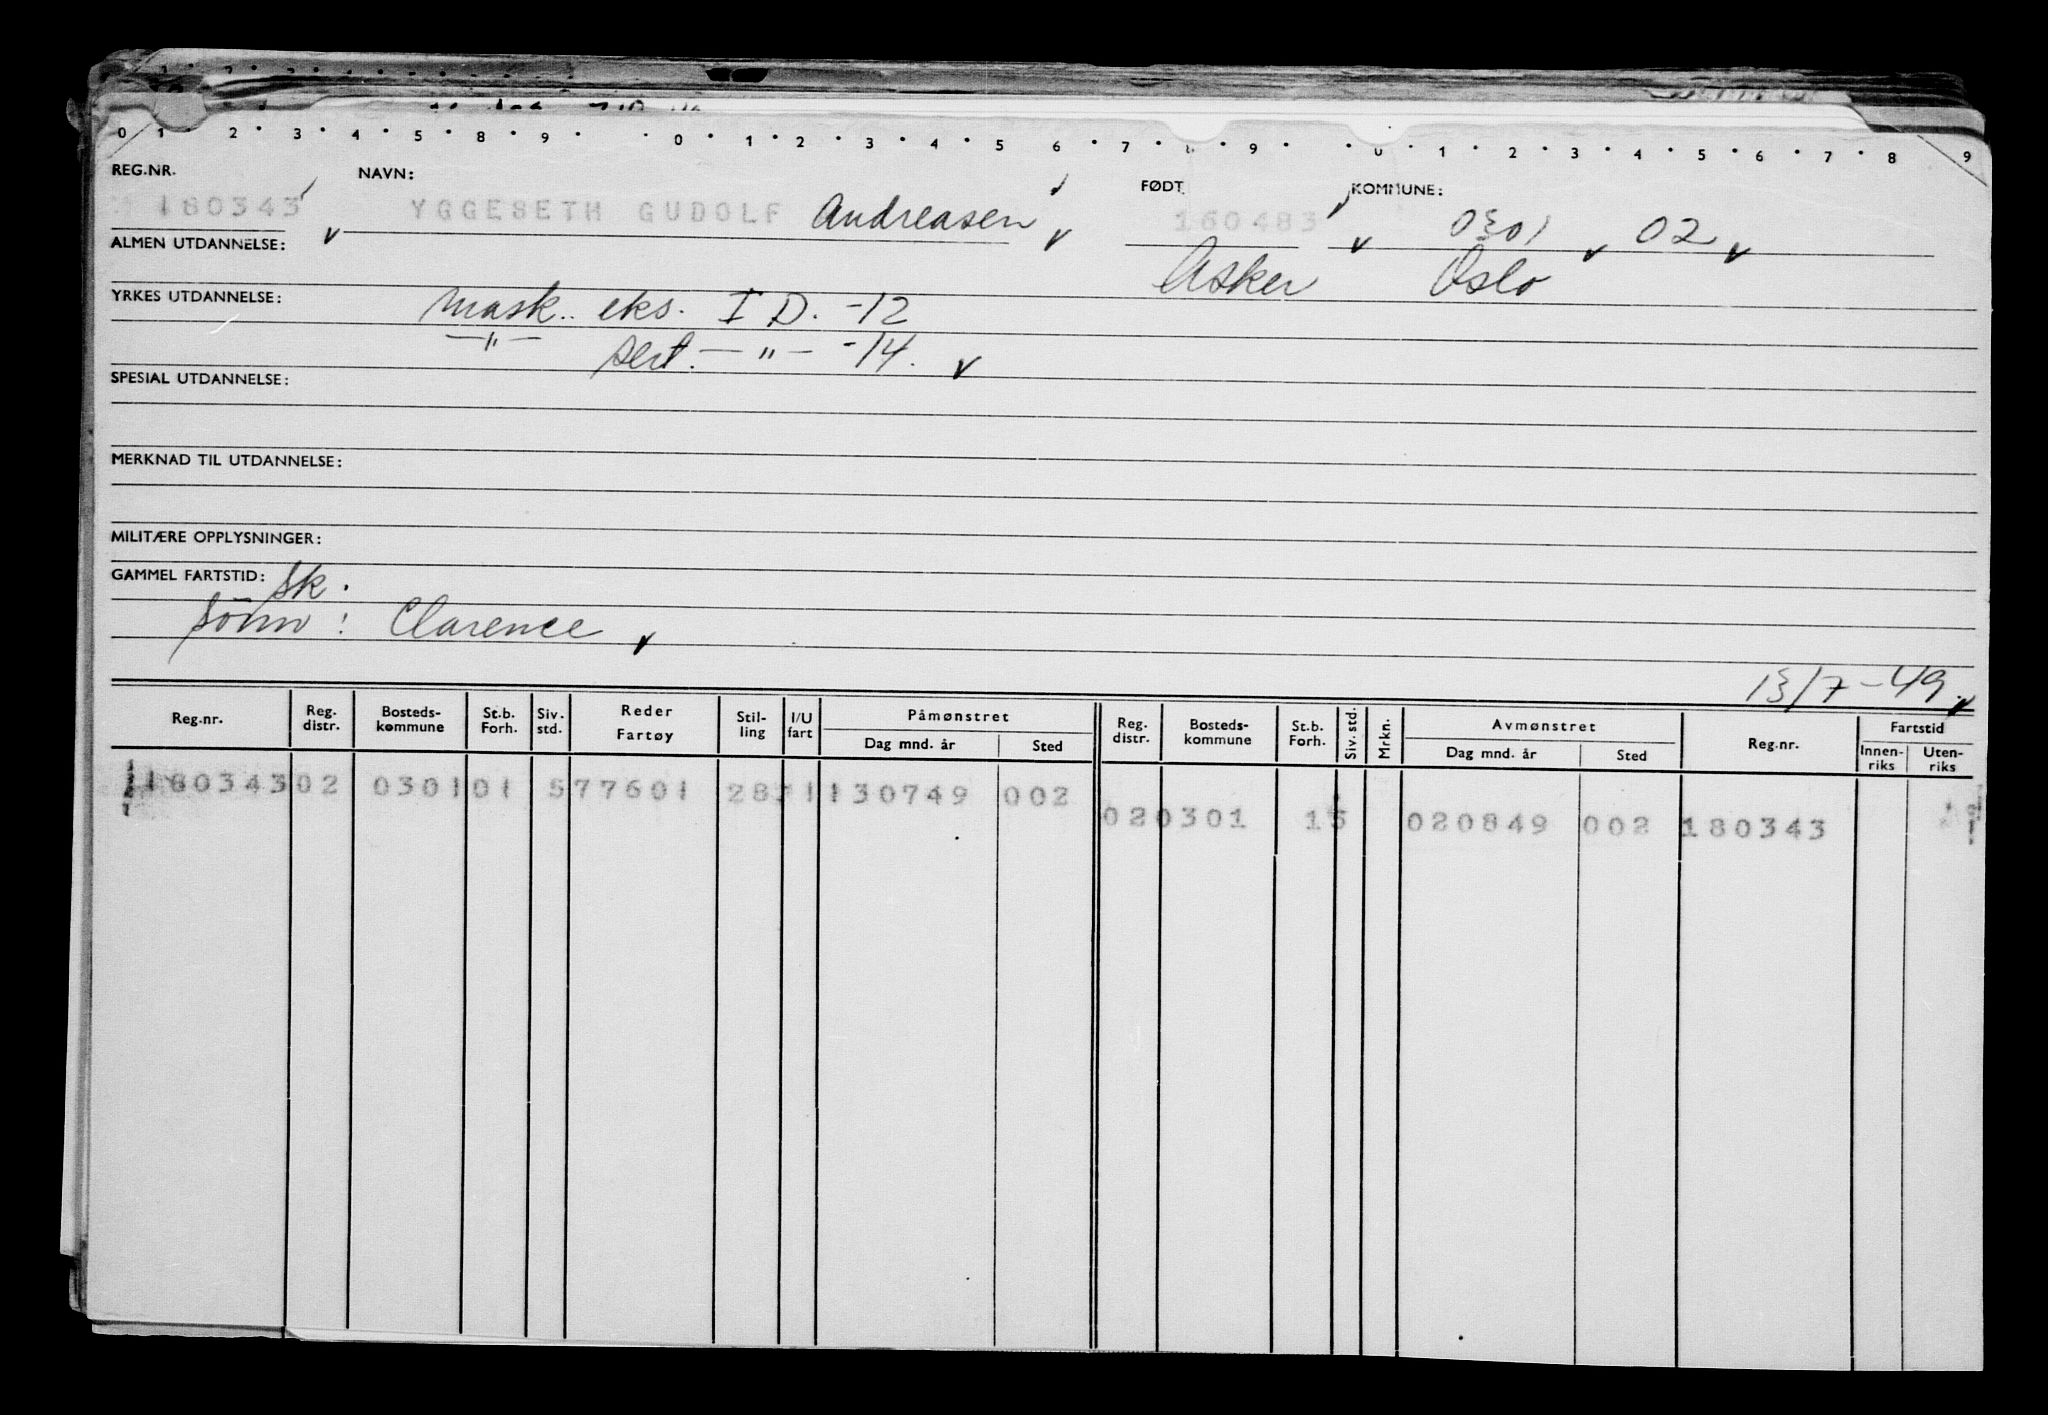 0 1 · 2 · 3 · 4 · 5 · 8 · 9 · · 0 · 1 · 2 · 3 · 4 · 5 · 6 · 7 · 8 · 9 · · 0 · 1 · 2 · 3 · 4 · 5 · 6 · 7 · 8 9
REG.NR. NAVN: FØDT KOMMUNE:
180343 YGGESETH GUDOLF Andreasen 160483 0301 02
ALMEN UTDANNELSE: Asker Oslo
YRKES UTDANNELSE: Mask. eks. I D. -12
—"— sert. — " — -14.
SPESIAL UTDANNELSE:
MERKNAD TIL UTDANNELSE:
MILITÆRE OPPLYSNINGER:
GAMMEL FARTSTID: Sk.
Sönn: Clarence
13/7-49.
Reg.nr. Reg. distr. Bosteds-kommune St.b. Forh. Siv. std. Reder Fartøy Stil-ling I/U fart Påmønstret Dag mnd. år Sted Reg. distr. Bosteds-kommune St.b. Forh. Siv. std. Mrkn. Avmønstret Dag mnd. år Sted Reg.nr. Fartstid Innen-riks Uten-riks
180343 02 0301 01 5 77601 28 1 130749 002
02 0301 15 020849 002 180343